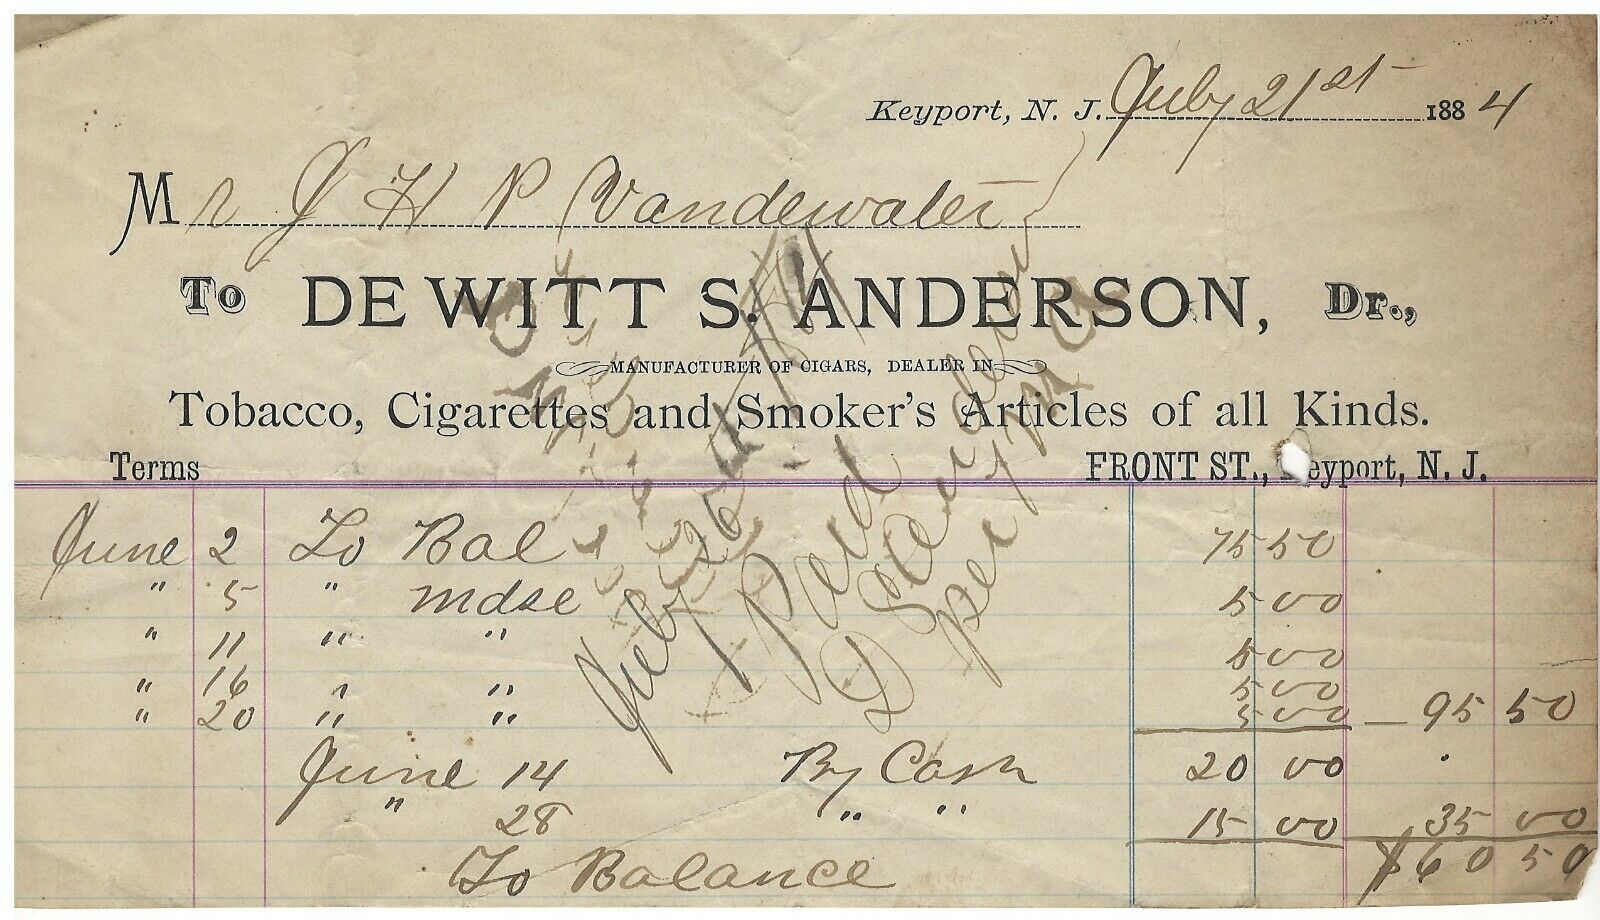 Keyport, N. J. July 21st 1884
Mr J H P Vandewater
To DE WITT S. ANDERSON, Dr.,
MANUFACTURER OF CIGARS, DEALER IN
Tobacco, Cigarettes and Smoker's Articles of all Kinds.
Terms FRONT ST., Keyport, N. J.
June 2 To Bal 75 50
" 5 " mdse 5 00
" 11 " " 5 00
" 16 " " 5 00
" 20 " " 5 00 — 95 50
June 14 By Cash 20 00
" 28 " " 15 00 35 00
To Balance $60 50
July 26th / 84
Paid
D S Anderson
per